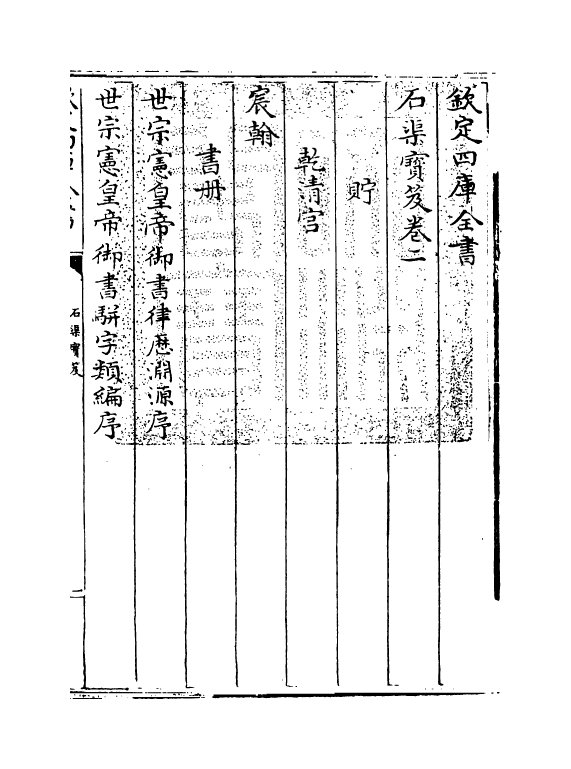 欽定四庫全書
石渠寶笈卷二
貯
乾清宫
宸翰
書册
世宗憲皇帝御書律厯淵源序
世宗憲皇帝御書駢字類編序
石渠寶笈